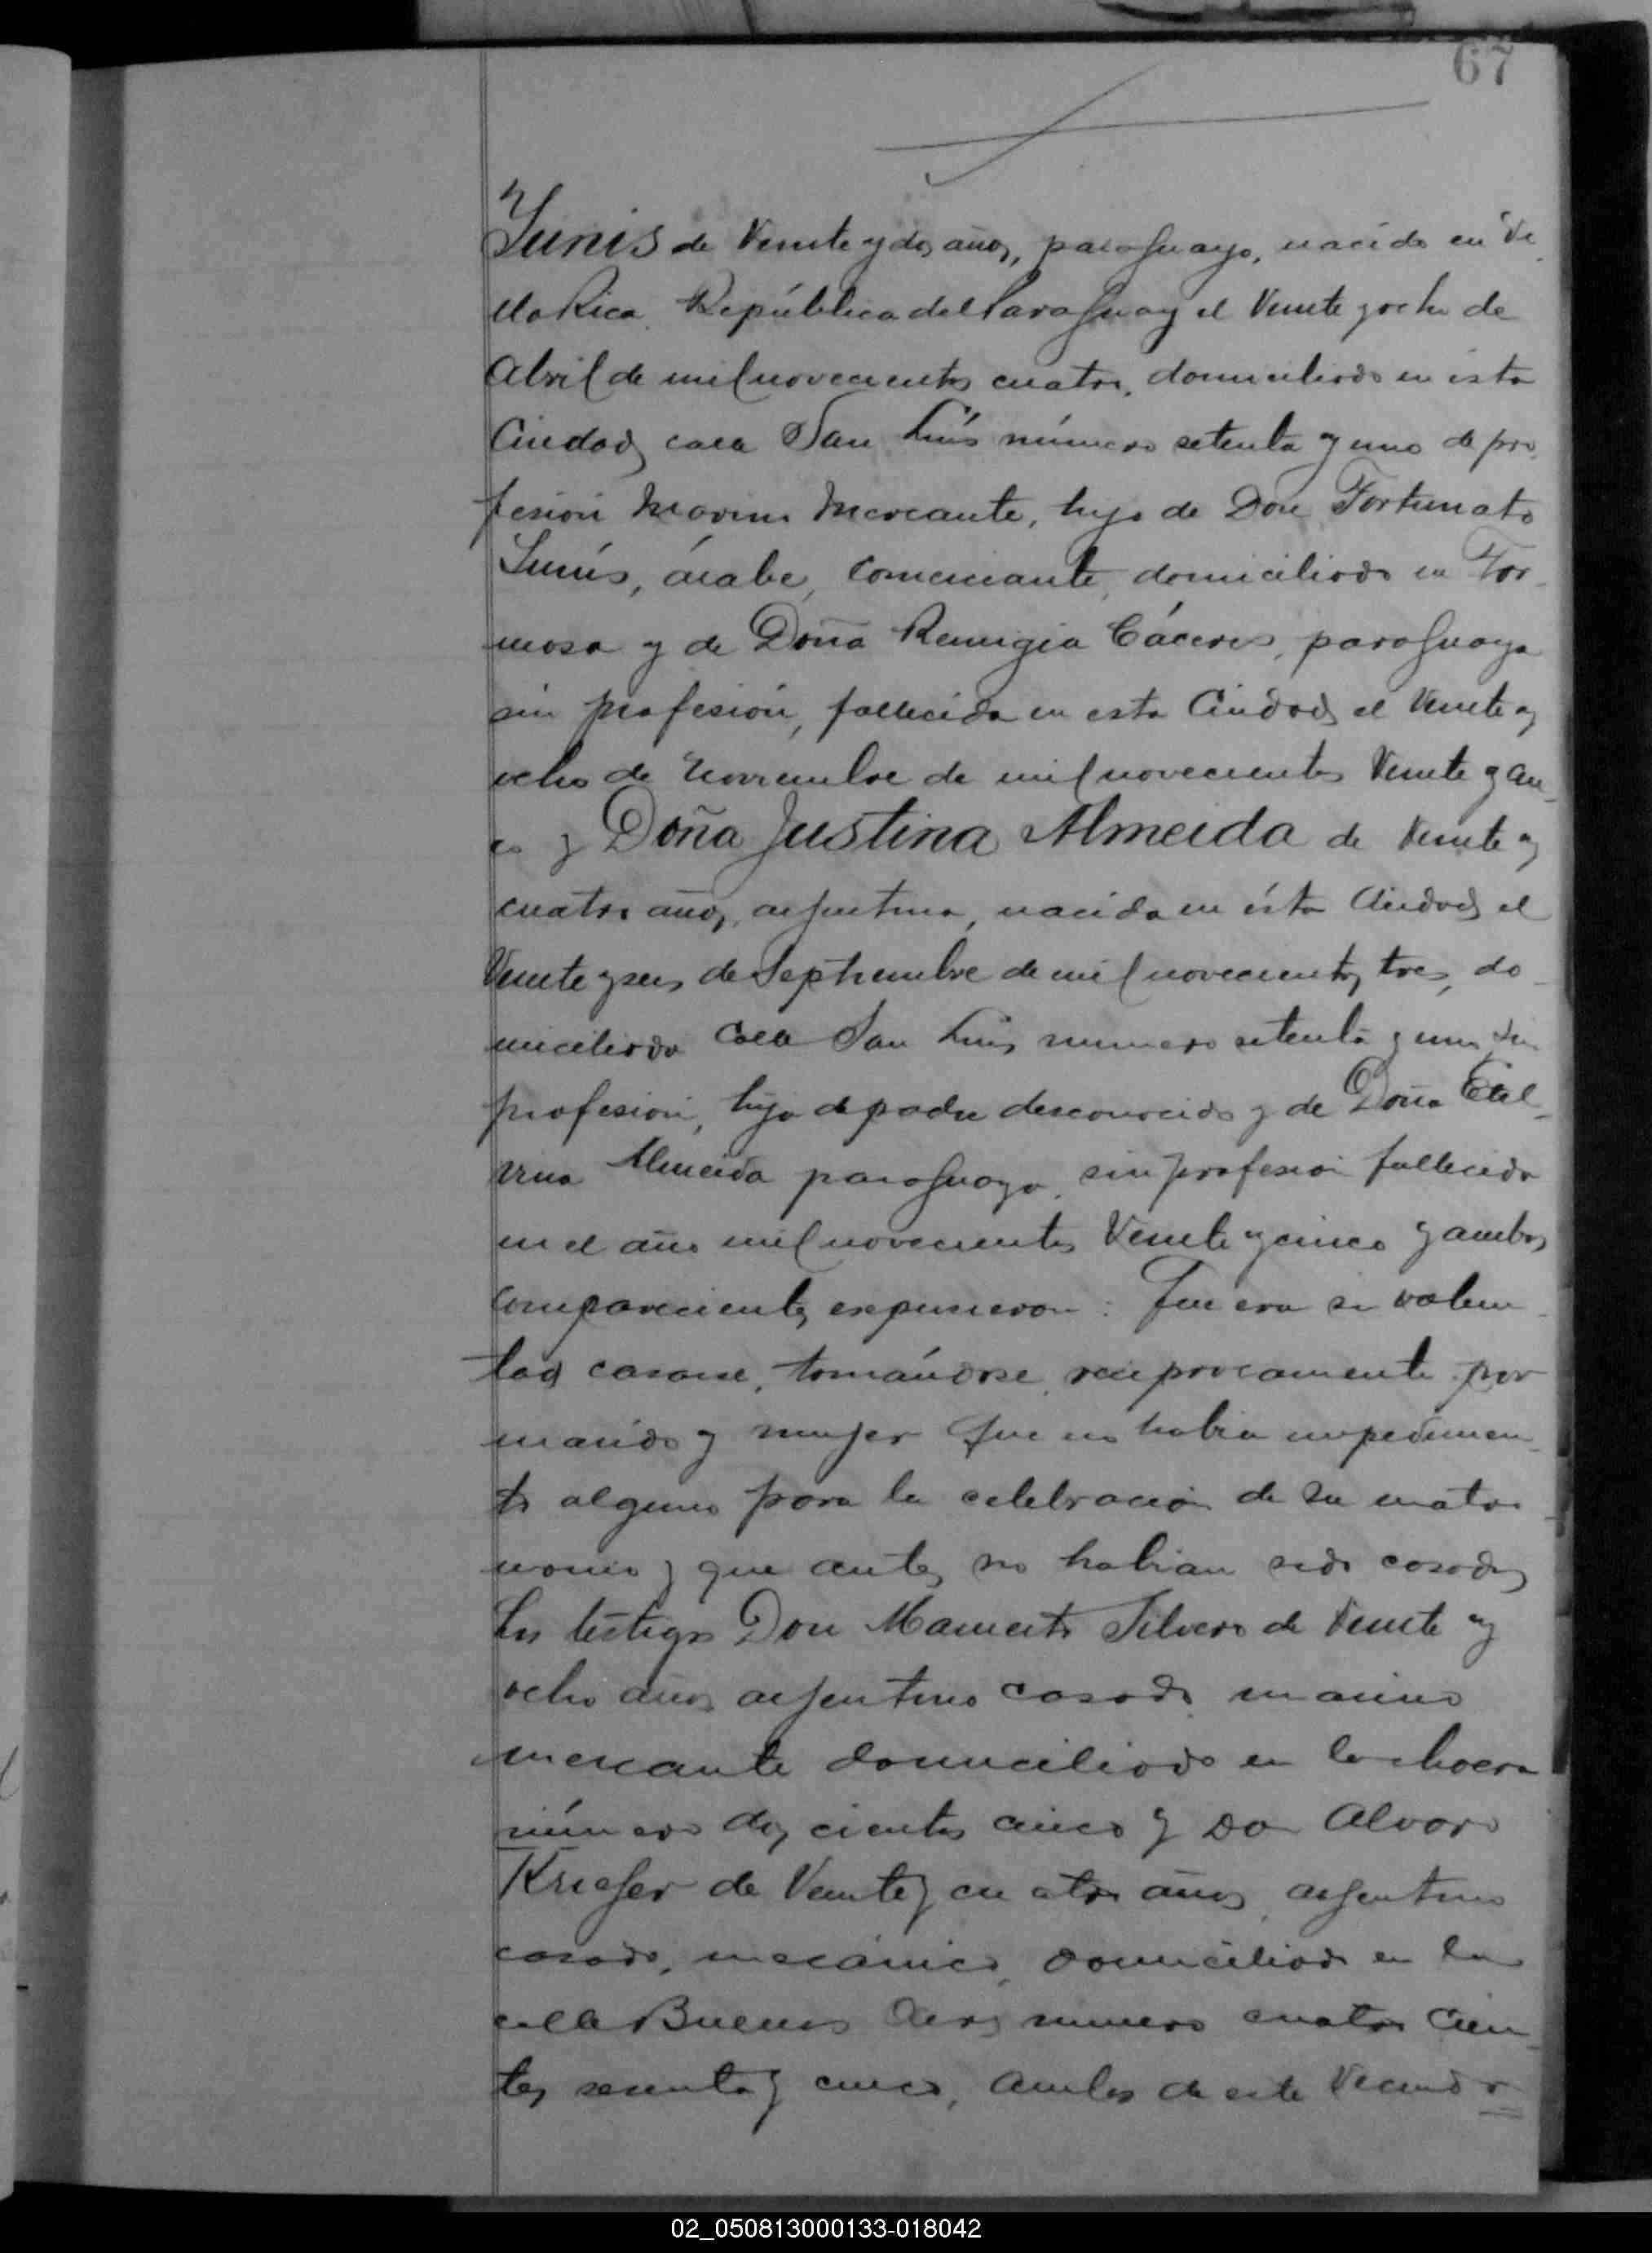 67
Yunis de Veinte y dos años, paraguayo, nacido en Vi
lla Rica República del Paraguay el Veinte y ocho de
Abril de mil novecientos cuatro, domiciliado en esta
Ciudad calle San Luís número setenta y uno de pro
fesión Marino Mercante, hijo de Don Fortunato
Yunis, árabe, comerciante, domiciliado en For
mosa y de Doña Remigia Cáceres, paraguaya
sin profesión, fallecida en esta Ciudad el Veinte y
ocho de Noviembre de mil novecientos Veinte y cin
co y Doña Justina Almeida de Veinte y
cuatro años, argentina, nacida en ésta Ciudad el
Veinte y seis de Septiembre de mil novecientos tres, do
miciliada calle San Luis numero setenta y uno sin
profesión, hija de padre desconocido y de Doña Etel
vina Almeida paraguaya, sin profesión fallecida
en el año mil novecientos Veinte y cinco y ambos
comparecientes expusieron: Que era su volun
tad casarse, tomándose reciprocamente por
marido y mujer que no habia impedimen
to alguno para la celebración de su matri
monio y que antes no habian sido casados
Los testigos Don Mamerto Silvero de Veinte y
ocho años argentino casado marino
mercante domiciliado en la chacra
número dos cientos cinco y Don Alvaro
Krieger de Veinte y cuatro años, argentino
casado, mecánico, domiciliado en la
calle Buenos Aires numero cuatro cien
tos sesenta y cinco, ambos de este Vecind
02_050813000133-018042